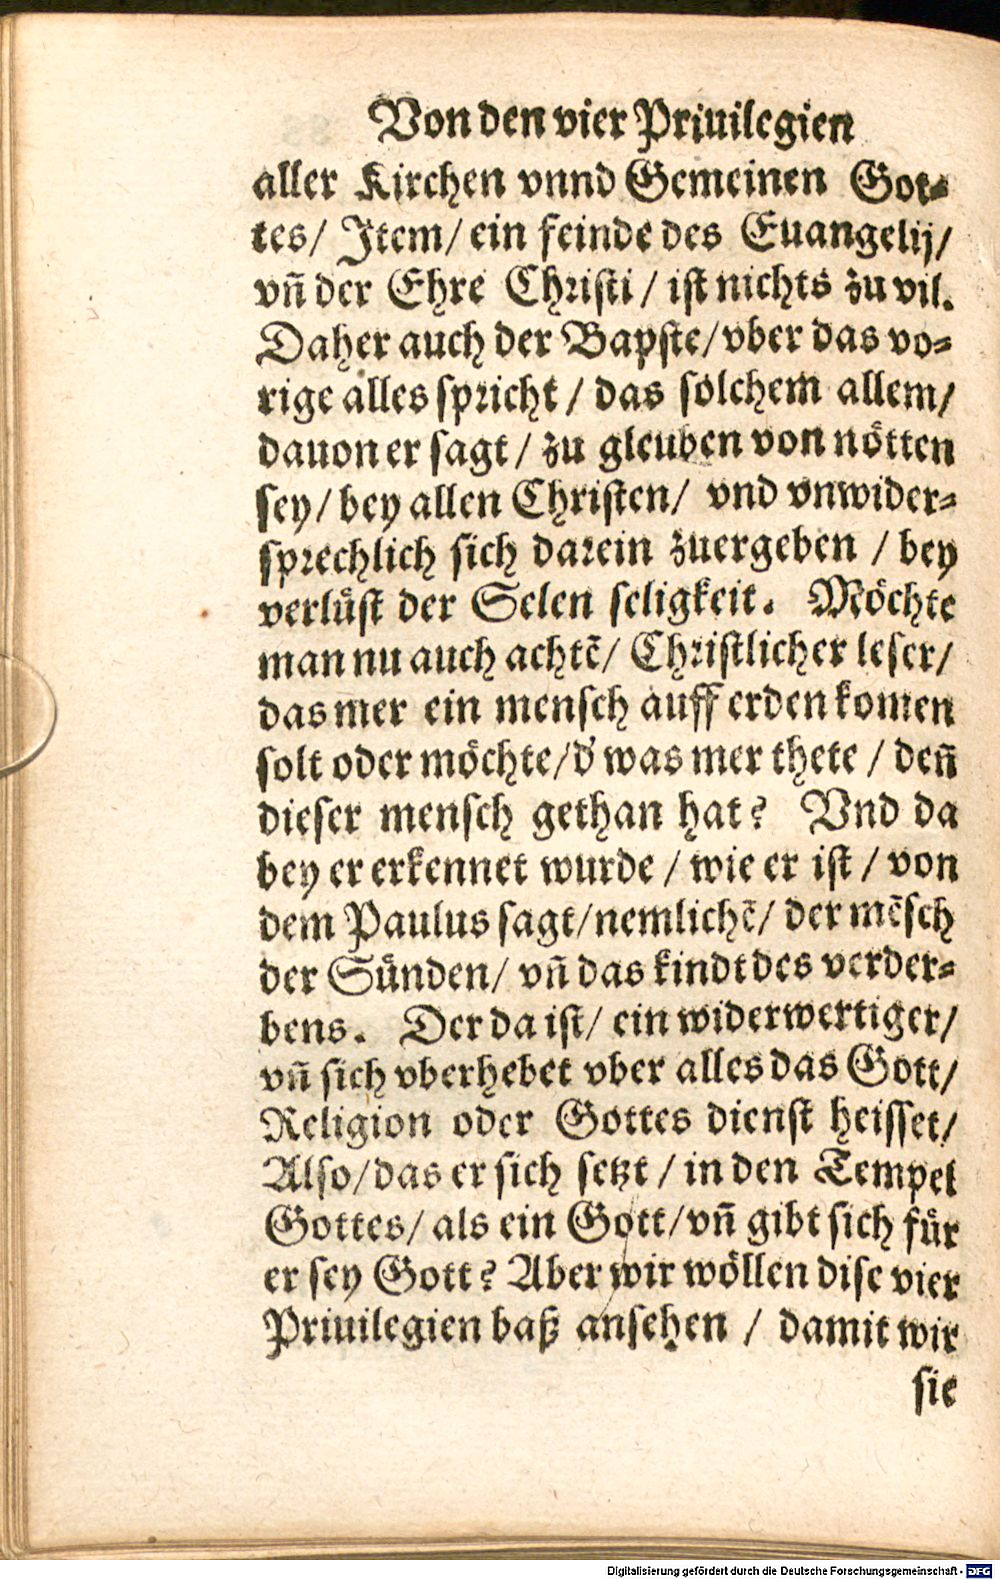 Von den vier Priuilegien
aller Kirchen vnnd Gemeinen Got⸗
tes/ Item/ ein feinde des Euangelij/
vn̄ der Ehre Christi / ist nichts zu vil.
Daher auch der Bapste/ vber das vo⸗
rige alles spricht / das solchem allem/
dauon er sagt / zu gleuben von nötten
sey/ bey allen Christen/ vnd vnwider⸗
sprechlich sich darein zuergeben / bey
verlüst der Selen seligkeit. Möchte
man nu auch achtē/ Christlicher leser/
das mer ein mensch auff erden komen
solt oder möchte/ d' was mer thete / den̄
dieser mensch gethan hat? Vnd da
bey er erkennet wurde / wie er ist / von
dem Paulus sagt/ nemlichē/ der mēsch
der Sünden/ vn̄ das kindt des verder⸗
bens. Der da ist/ ein widerwertiger/
vn̄ sich vberhebet vber alles das Gott/
Religion oder Gottes dienst heisset/
Also/ das er sich setzt / in den Tempel
Gottes/ als ein Gott/ vn̄ gibt sich für
er sey Gott? Aber wir wöllen dise vier
Priuilegien baß ansehen / damit wir
sie
Digitalisierung gefördert durch die Deutsche Forschungsgemeinschaft - DFG